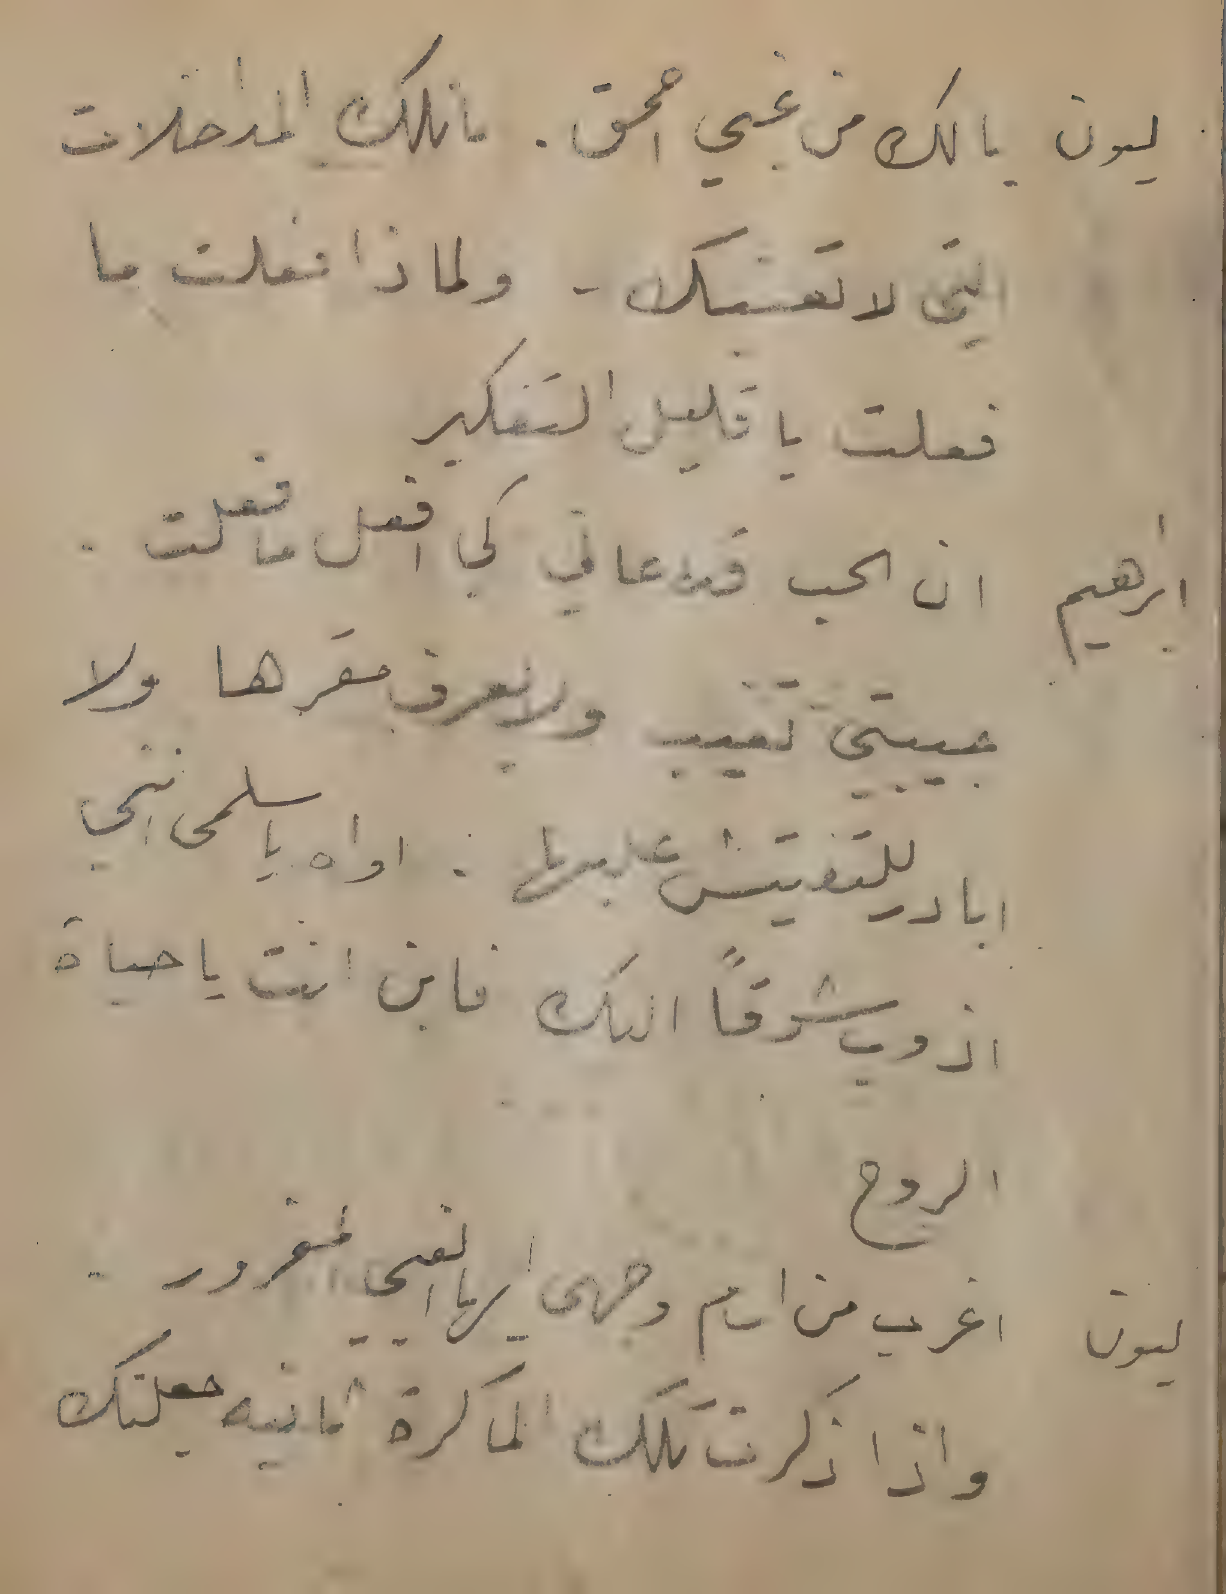 ليون يالك من غبي احمق. ماتلك المداخلات
التي لا تعنيك - ولماذا فعلت ما
فعلت يا قليل التفكير
ابرهيم ان الحب قد دعاني كي افعل ما فعلت.
حبيبتي تغيب ولا يعرف مقرها ولا
ابادر للتفتيش عليها: اواه يا سلمى انني
اذوب شوقاً اليك فاين انت يا حياة
الروح
ليون اغرب من امام وجهي ايها الغبي المغرور.
واذا ذكرت تلك الماكرة ثانيه جعلتك